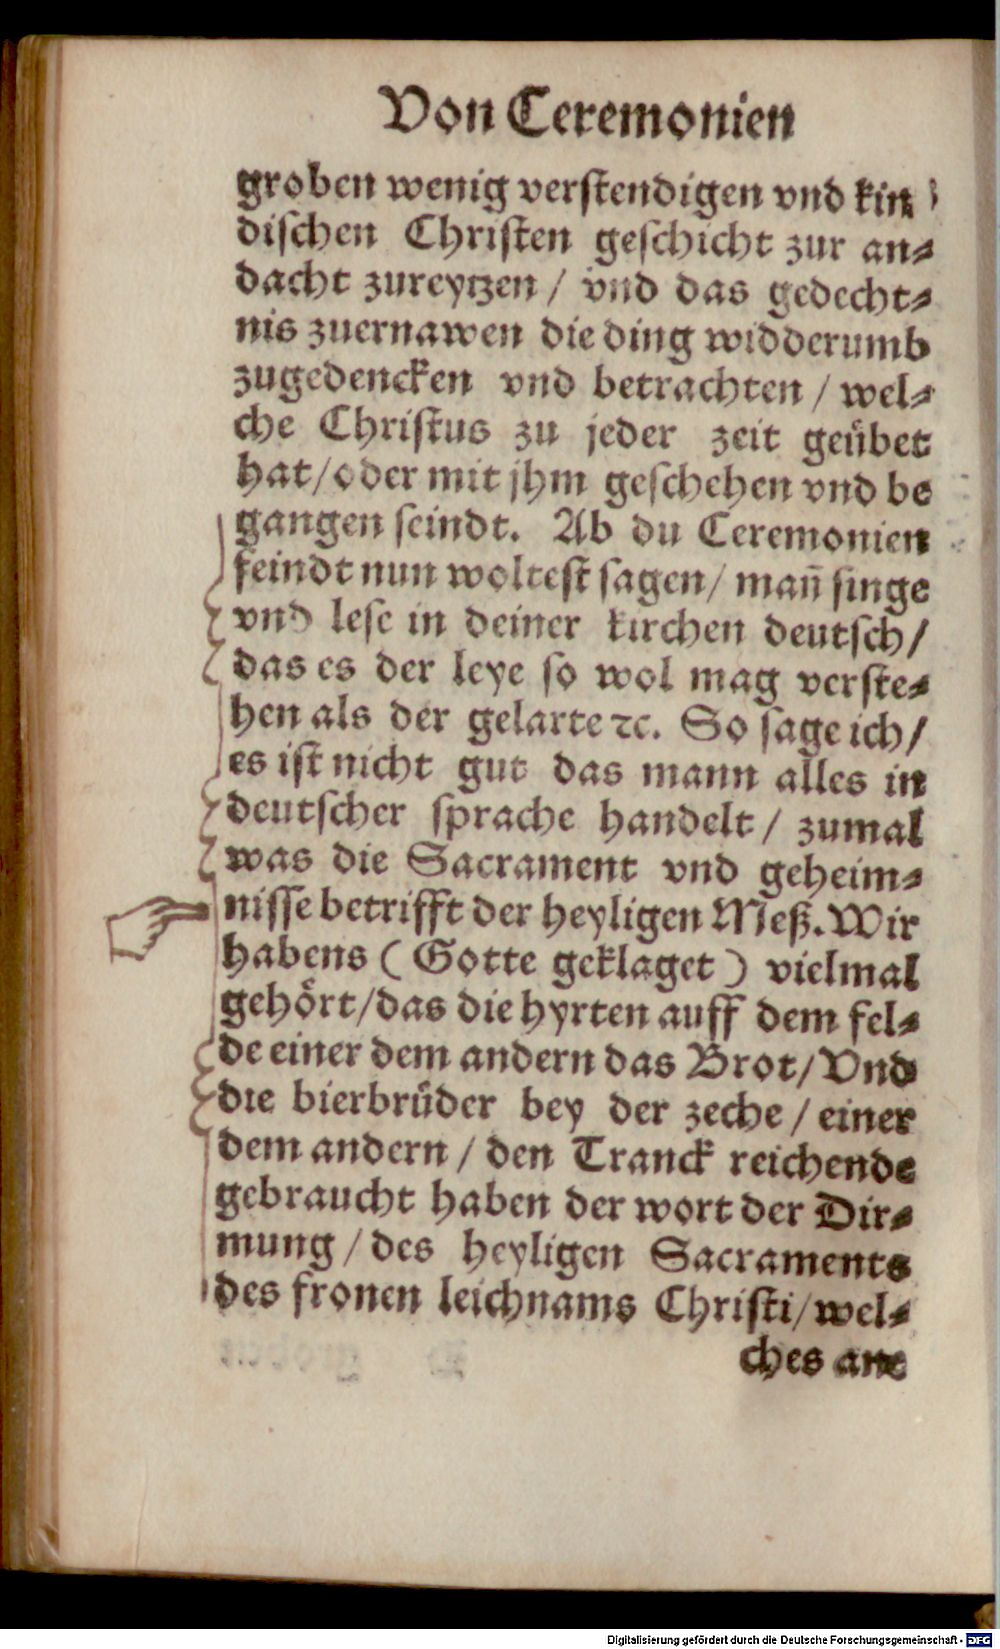 Von Ceremonien
groben wenig verstendigen vnd kin
dischen Christen geschicht zur an⸗
dacht zureytzen / vnd das gedecht⸗
nis zuernawen die ding widderumb
zugedencken vnd betrachten / wel⸗
che Christus zu jeder zeit geübet
hat/oder mit jhm geschehen vnd be
gangen seindt. Ab du Ceremonien
feindt nun woltest sagen/ man̄ singe
vnd lese in deiner kirchen deutsch/
das es der leye so wol mag verste⸗
hen als der gelarte ⁊c. So sage ich/
es ist nicht gut das mann alles in
deutscher sprache handelt / zumal
was die Sacrament vnd geheim⸗
nisse betrifft der heyligen Meß. Wir
habens ( Gotte geklaget ) vielmal
gehört/das die hyrten auff dem fel⸗
de einer dem andern das Brot/Vnd
die bierbrüder bey der zeche / einer
dem andern / den Tranck reichende
gebraucht haben der wort der Dir⸗
mung / des heyligen Sacraments
des fronen leichnams Christi/wel⸗
ches ane
Digitalisierung gefördert durch die Deutsche Forschungsgemeinschaft - DFG